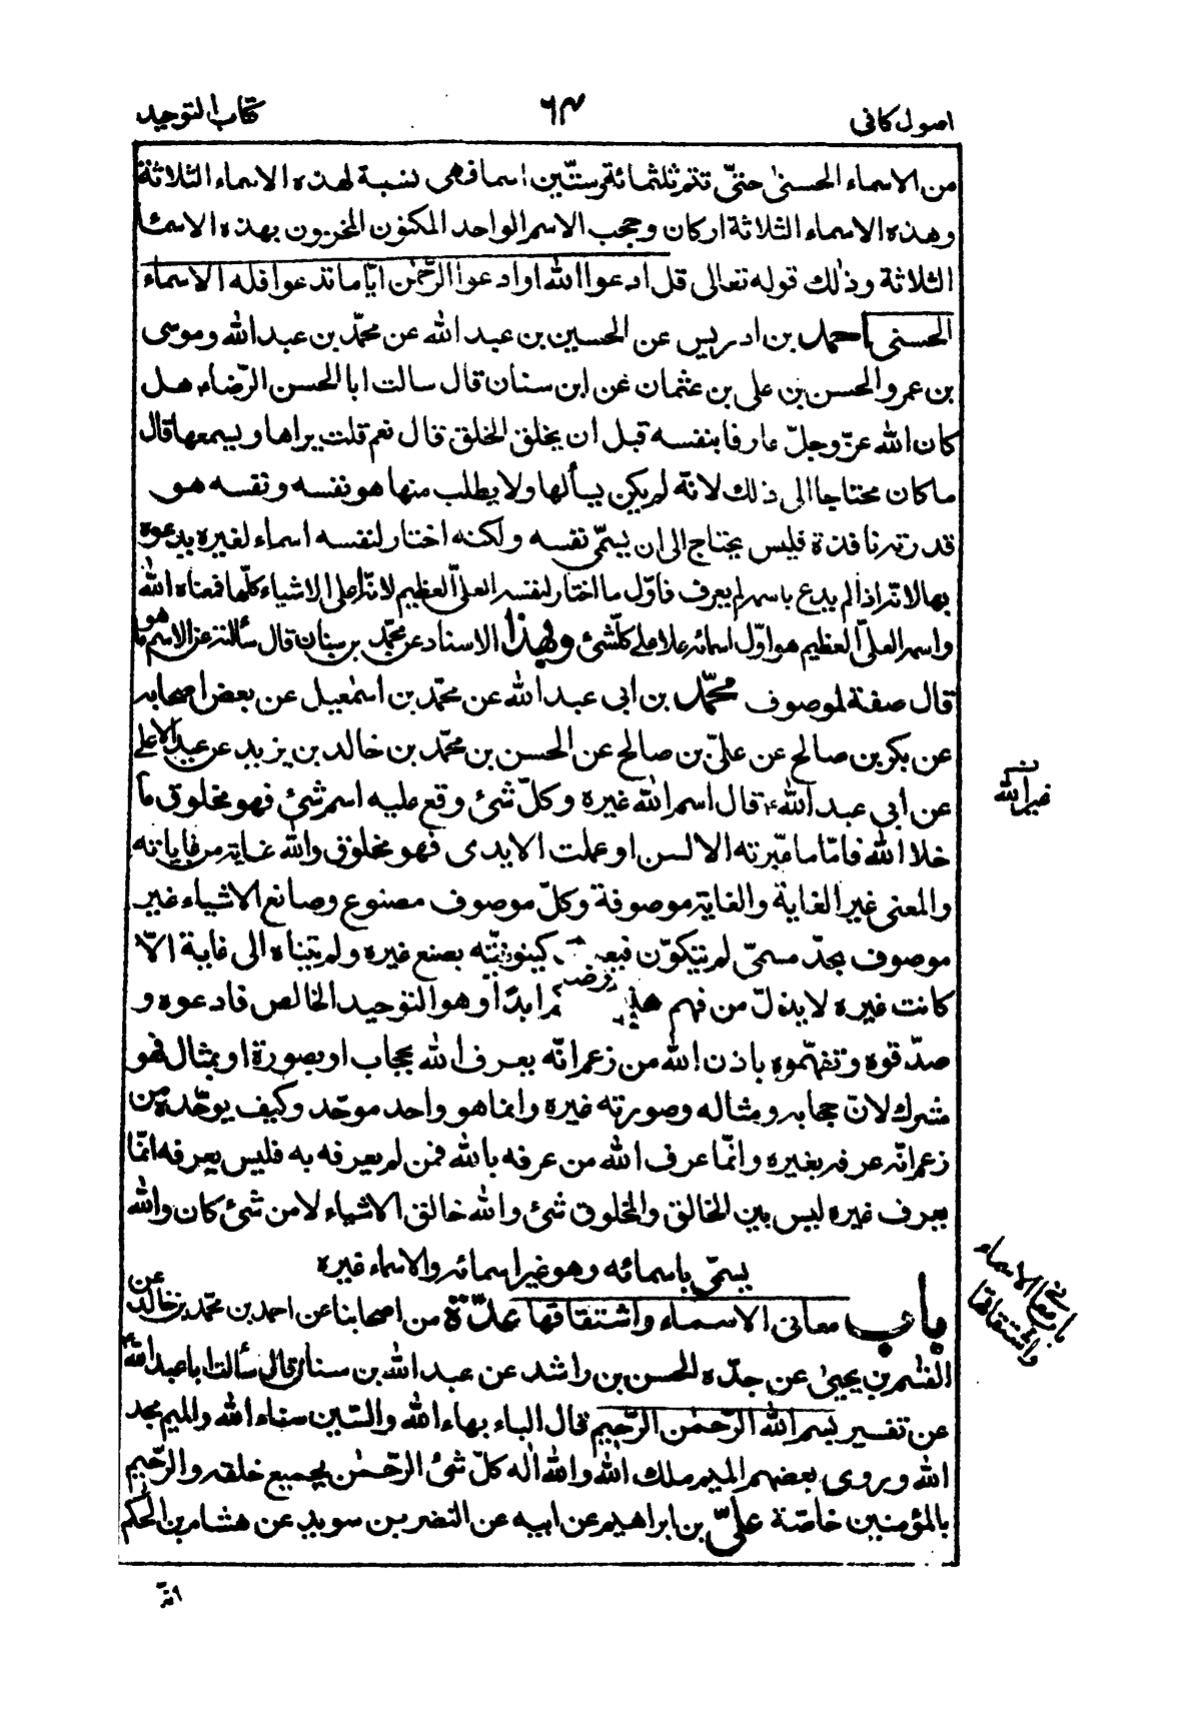 اصول كافى ٦٣ كتاب التوحيد
من الاسماء الحسنى حتّى تتم ثلثمائة وستّين اسما فهى نسبة لهذه الاسماء الثلاثة
وهذه الاسماء الثلاثة اركان وحجب الاسم الواحد المكنون المخزون بهذه الاسمآ
الثلاثة وذلك قوله تعالى قل ادعوا الله او ادعوا الرّحمٰن ايّا ما تدعوا فله الاسماء
الحسنى احمد بن ادريس عن الحسين بن عبد الله عن محمّد بن عبد الله وموسى
بن عمر والحسن بن على بن عثمان عن ابن سنان قال سالت ابا الحسن الرّضاء هل
كان الله عزّ وجلّ عارفا بنفسه قبل ان يخلق الخلق قال نعم قلت يراها ويسمعها قال
ما كان محتاجا الى ذلك لانّه لم يكن يسألها ولا يطلب منها هو نفسه ونفسه هو
قدرته نافذة فليس يحتاج الى ان يسمّى نفسه ولكنه اختار لنفسه اسماء لغيره يدعوه
بها لانه اذا لم يدع باسمه لم يعرف فاوّل ما اختار لنفسه العلىّ العظيم لانّه اعلى الاشياء كلّها فمعناه الله
واسمه العلىّ العظيم هو اوّل اسمائه علا على كلّ شئ وبهذا الاسناد عن محمّد بن سنان قال سألته عن الاسم ما هو
قال صفة لموصوف محمّد بن ابى عبد الله عن محمّد بن اسمٰعيل عن بعض اصحابه
عن بكر بن صالح عن علىّ بن صالح عن الحسن بن محمّد بن خالد بن يزيد عن عبد الاعلى
عن ابى عبد الله ع قال اسم الله غيره وكلّ شئ وقع عليه اسم شئ فهو مخلوق ما
خلا الله فامّا ما عبّرته الالسن او عملت الايدى فهو مخلوق والله غاية من غاياته
والمعنى غير الغاية والغاية موصوفة وكلّ موصوف مصنوع وصانع الاشياء غير
موصوف بحدّ مسمّى لم يتكوّن كينونيّته بصنع غيره ولم يتناه الى غاية الاّ
كانت غيره لا يذلّ من فهم ابدًا وهو التوحيد الخالص فادعوه و
صدّقوه وتفهّموه باذن الله من زعم انّه يعرف الله بحجاب او بصورة او بمثال فهو
مشرك لانّ حجابه ومثاله وصورته غيره وانما هو واحد موحّد وكيف يوحّده من
زعم انّه عرفه بغيره وانّما عرف الله من عرفه بالله فمن لم يعرفه به فليس يعرفه انّما
يعرف غيره ليس بين الخالق والمخلوق شئ والله خالق الاشياء لا من شئ كان والله
يسمّى باسمائه وهو غير اسمائه والاسماء غيره
باب معانى الاسماء واشتقاقها عدّة من اصحابنا عن احمد بن محمّد بن خالد عن
القٰسم بن يحيىٰ عن جدّه الحسن بن راشد عن عبد الله بن سنان قال سألت ابا عبد الله ع
عن تفسير بسم الله الرّحمٰن الرّحيم قال الباء بهاء الله والسّين سناء الله والميم مجد
الله وروى بعضهم الميم ملك الله والله اله كلّ شئ الرّحمٰن بجميع خلقه والرّحيم
بالمؤمنين خاصّة علىّ بن ابراهيم عن ابيه عن النضر بن سويد عن هشام بن الحكم
انّه
غير الله
باب معانى الاسماء
واشتقاقها